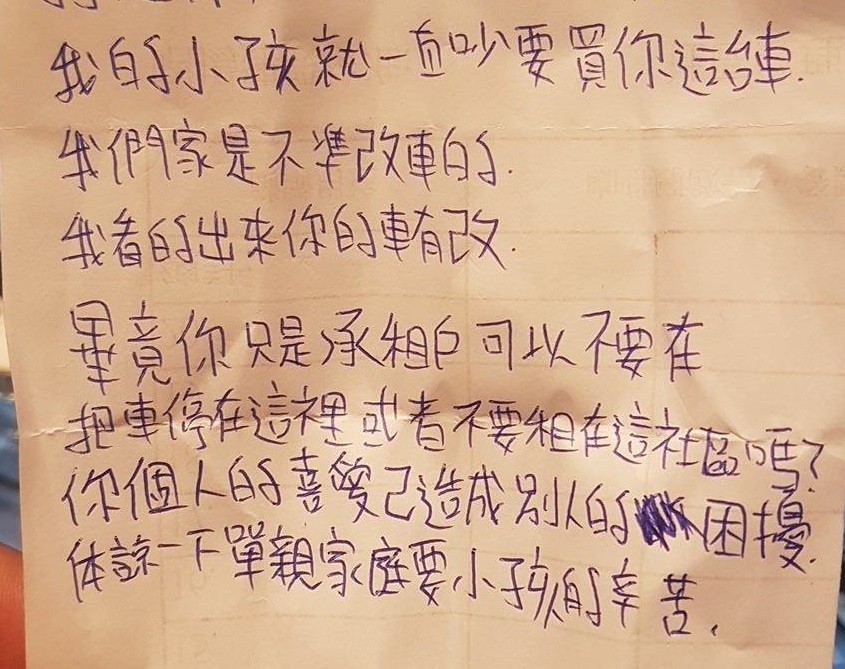 我的小孩就一直吵要買你這台車.
我們家是不準改車的.
我看的出來你的車有改.
畢竟你只是承租戶可以不要在
把車停在這裡或者不要租在這社區嗎?
你個人的喜愛已造成別人的困擾.
体諒一下單親家庭要小孩的辛苦.